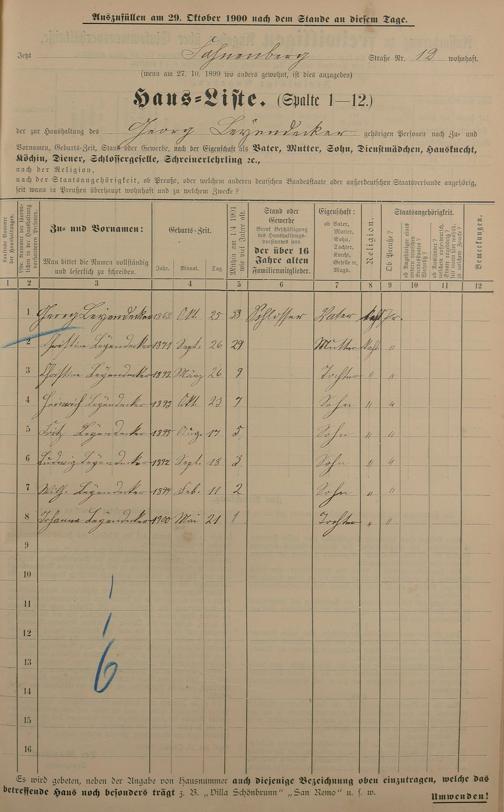 Auszufüllen am 29. Oktober 1900 nach dem Stande an diesem Tage.
Jetzt Fahnenberg Straße Nr. 12 wohnhaft.
(wenn am 27. 10. 1899 wo anders gewohnt, ist dies anzugeben)
Haus-Liste. (Spalte 1—12.)
der zur Haushaltung des Georg Leyendecker gehörigen Personen nach Zu- und
Vornamen, Geburts-Zeit, Stand oder Gewerbe, nach der Eigenschaft als Vater, Mutter, Sohn, Dienstmädchen, Hausknecht,
Köchin, Diener, Schlossergeselle, Schreinerlehrling ꝛc.,
nach der Religion,
nach der Staatsangehörigkeit, ob Preuße, oder welchem anderen deutschen Bundesstaate oder außerdeutschen Staatsverbande angehörig,
seit wann in Preußen überhaupt wohnhaft und zu welchem Zwecke?
Zu- und Vornamen:
Man bittet die Namen vollständig und leserlich zu schreiben.
Geburts-Zeit.
Jahr. Monat. Tag.
Stand oder Gewerbe
der über 16 Jahre alten Familienmitglieder.
Eigenschaft:
ob Vater, Mutter, Sohn, Tochter, Knecht, Geselle u. Magd.
Religion.
Staatsangehörigkeit.
Ob Preuße?
Bemerkungen.
1 2 3 4 5 6 7 8 9 10 11 12
1 Georg Leyendecker Okt. 25 Schlosser Vater kath Pr.
2 Leyendecker Sept. 26 29 Mutter kath "
3 Leyendecker März 26 9 Tochter " "
4 Heinrich Leyendecker 1893 Okt. 23 7 Sohn " "
5 Fritz Leyendecker 1895 Aug. 17 5 Sohn " "
6 Ludwig Leyendecker Sept. 18 3 Sohn " "
7 Wilh. Leyendecker Feb. 11 2 Sohn " "
8 Johanna Leyendecker 1900 Mai 21 1 Tochter " "
9
10
11
12
13
14
15
16
6
Es wird gebeten, neben der Angabe von Hausnummer auch diejenige Bezeichnung oben einzutragen, welche das
betreffende Haus noch besonders trägt z. B. „Villa Schönbrunn" „San Remo" u. s. w.
Umwenden!